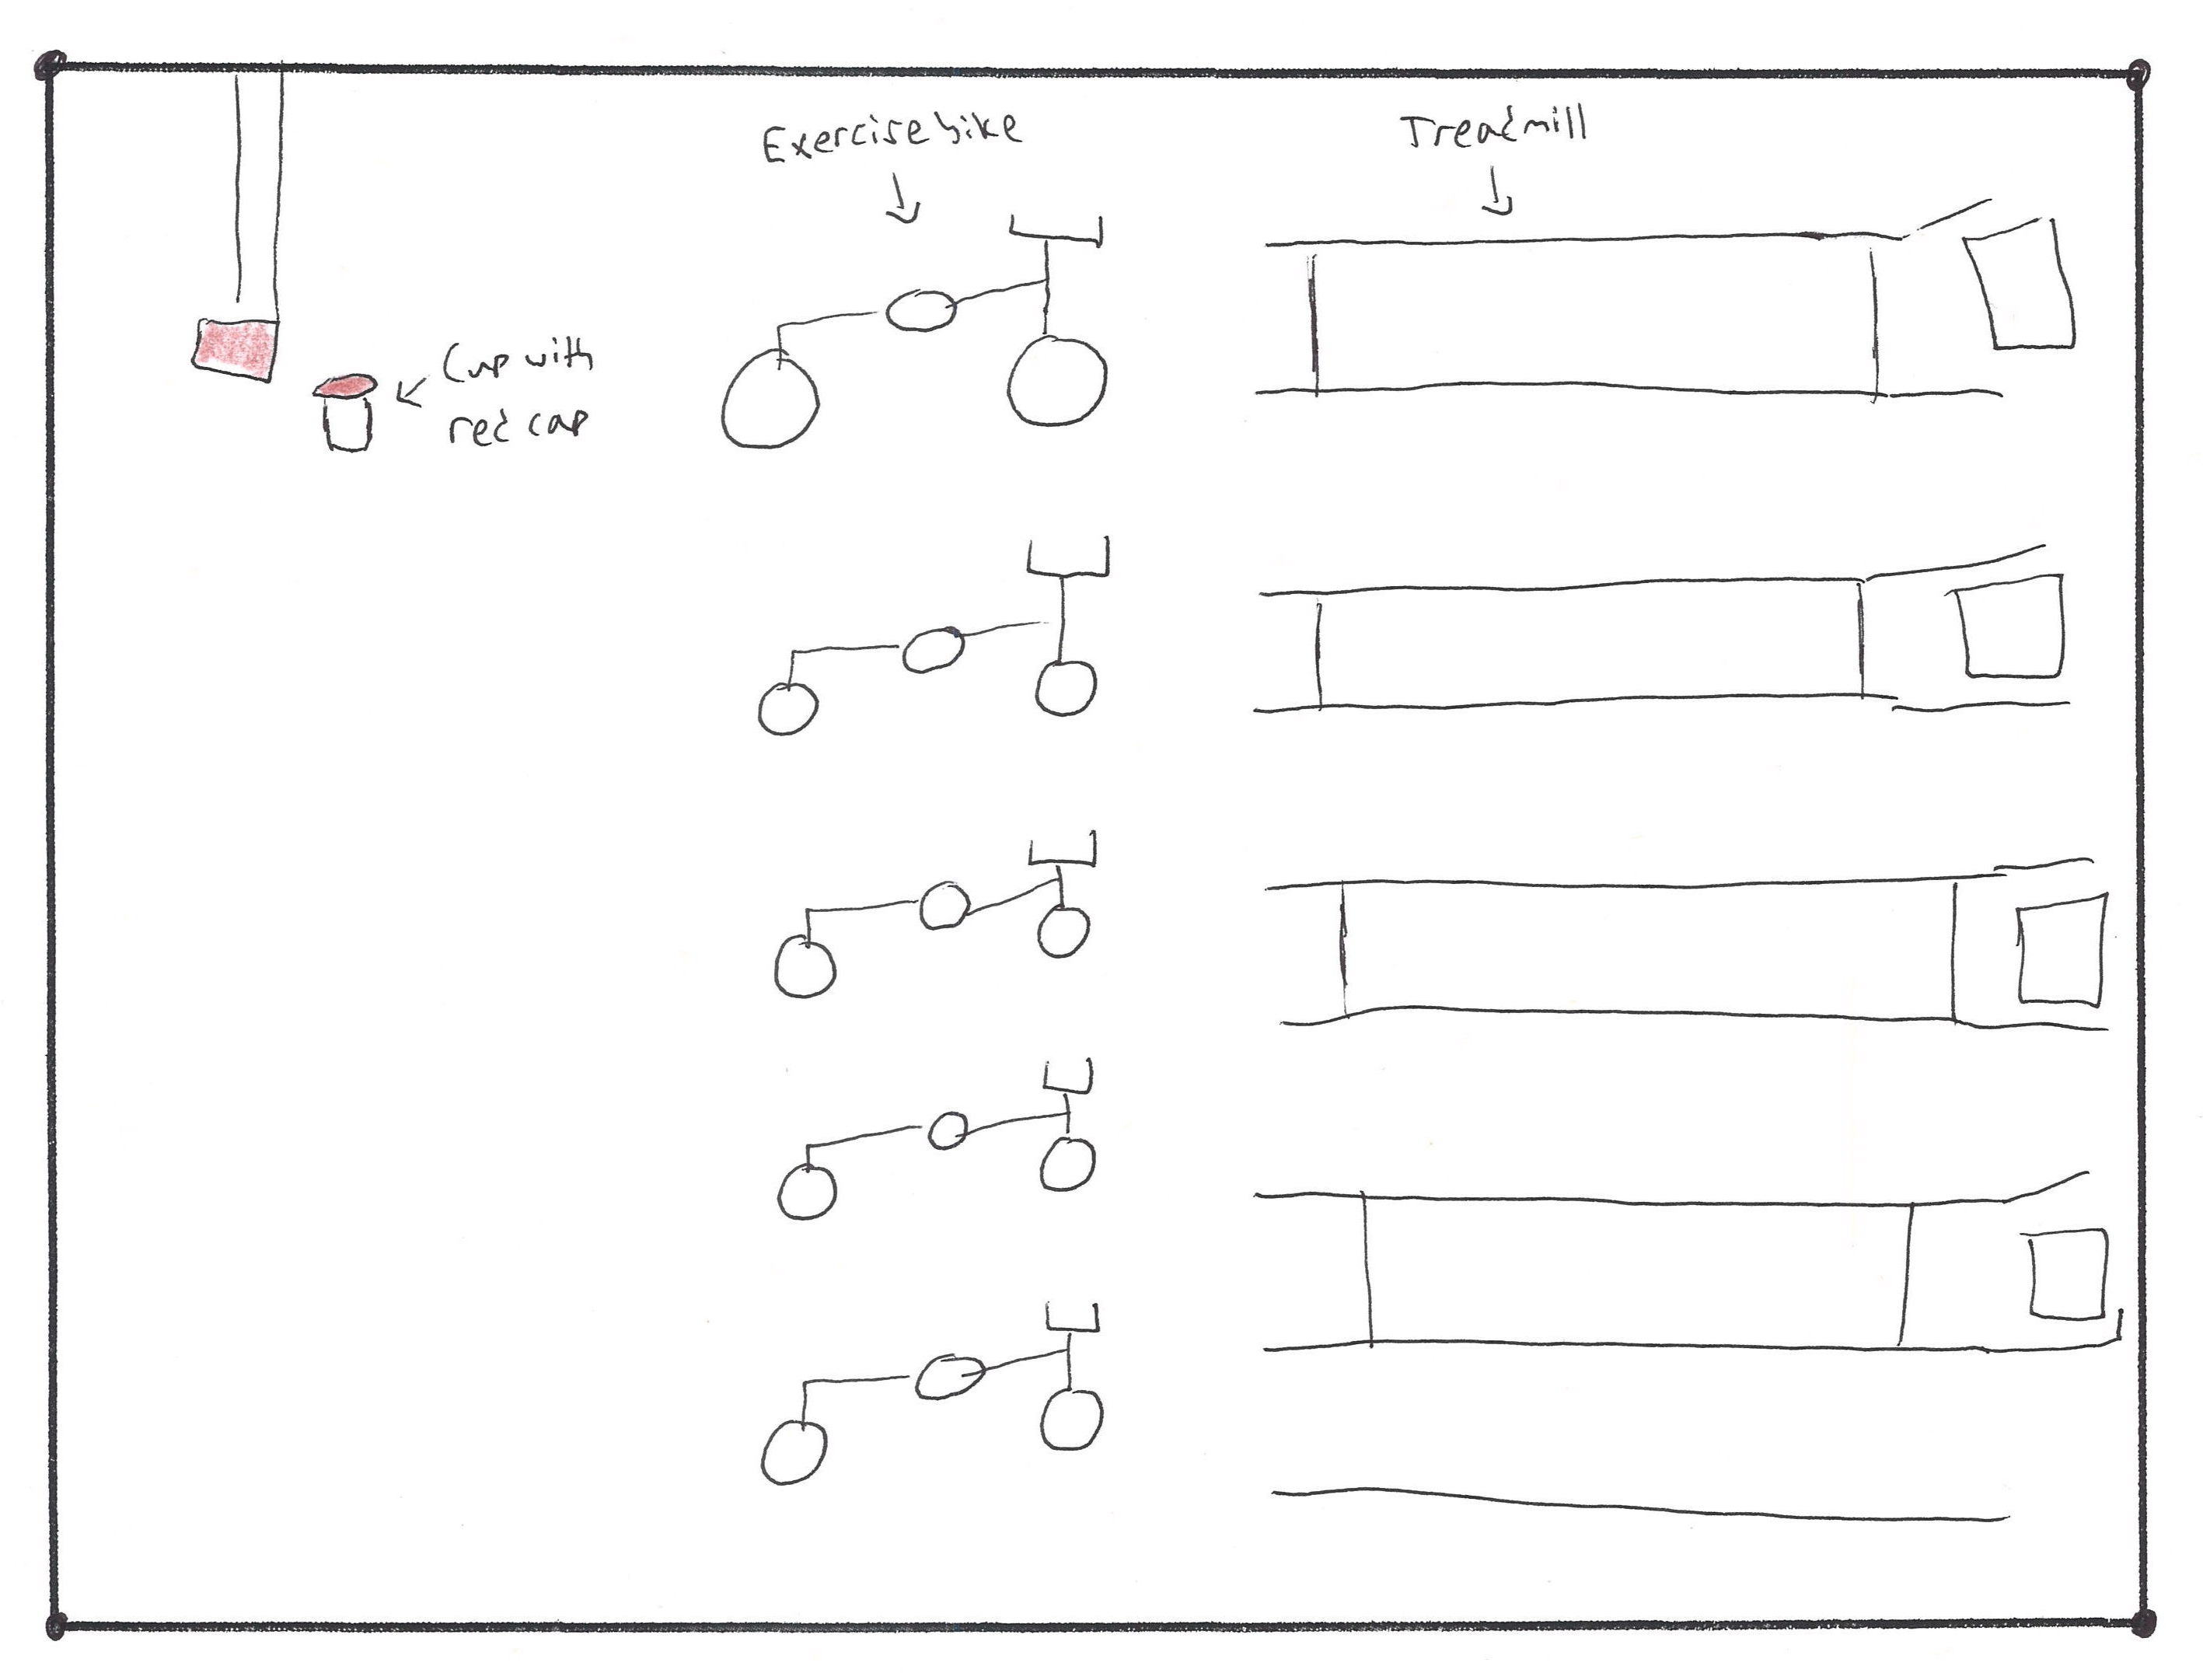 Exercise bike
Treadmill
Cup with
red cap